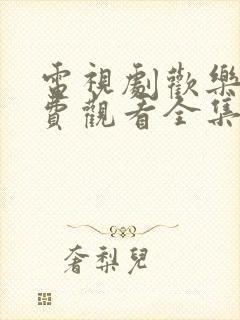 電視劇歡樂
費觀看全集
奢梨兒